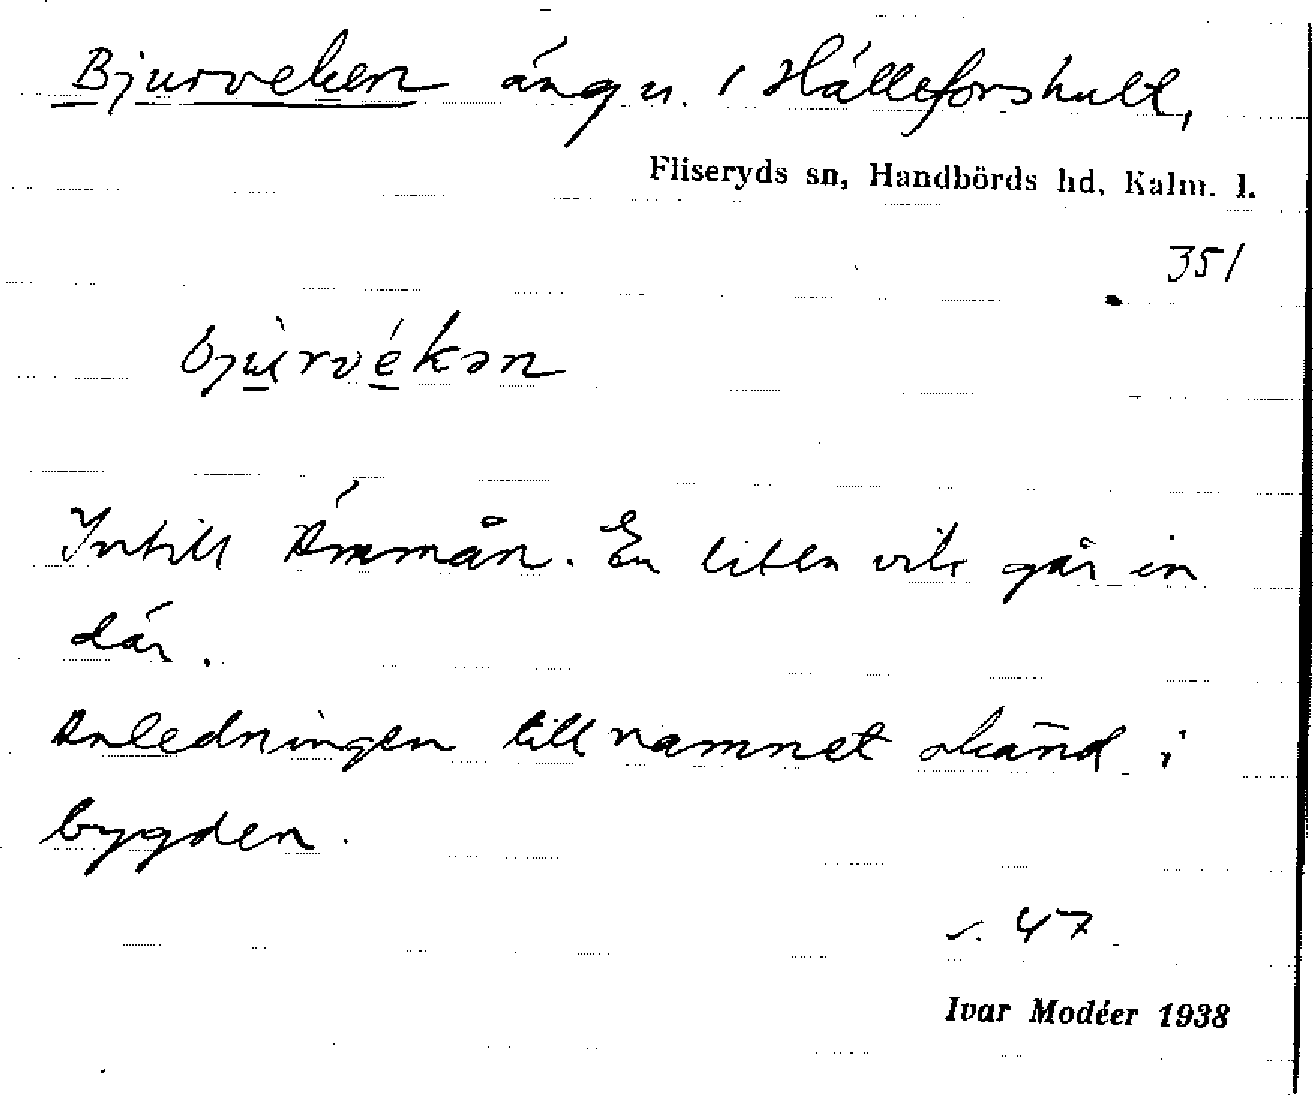 Bjurveken äng n. i Hälleforshult,
Fliseryds sn, Handbörds hd, Kalm. l.
351
bjùrvékən
Intill Ämmån. En liten vik går in
där.
Anledningen till namnet okänd i
bygden.
s. 47
Ivar Modéer 1938